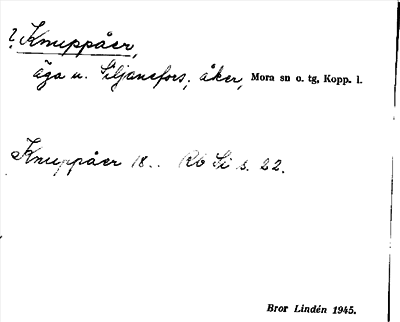 ? Knuppåer,
äga u. Siljansfors; åker, Mora sn o. tg, Kopp. l.
Knuppåer 18.. Rb Si s. 22.
Bror Lindén 1945.